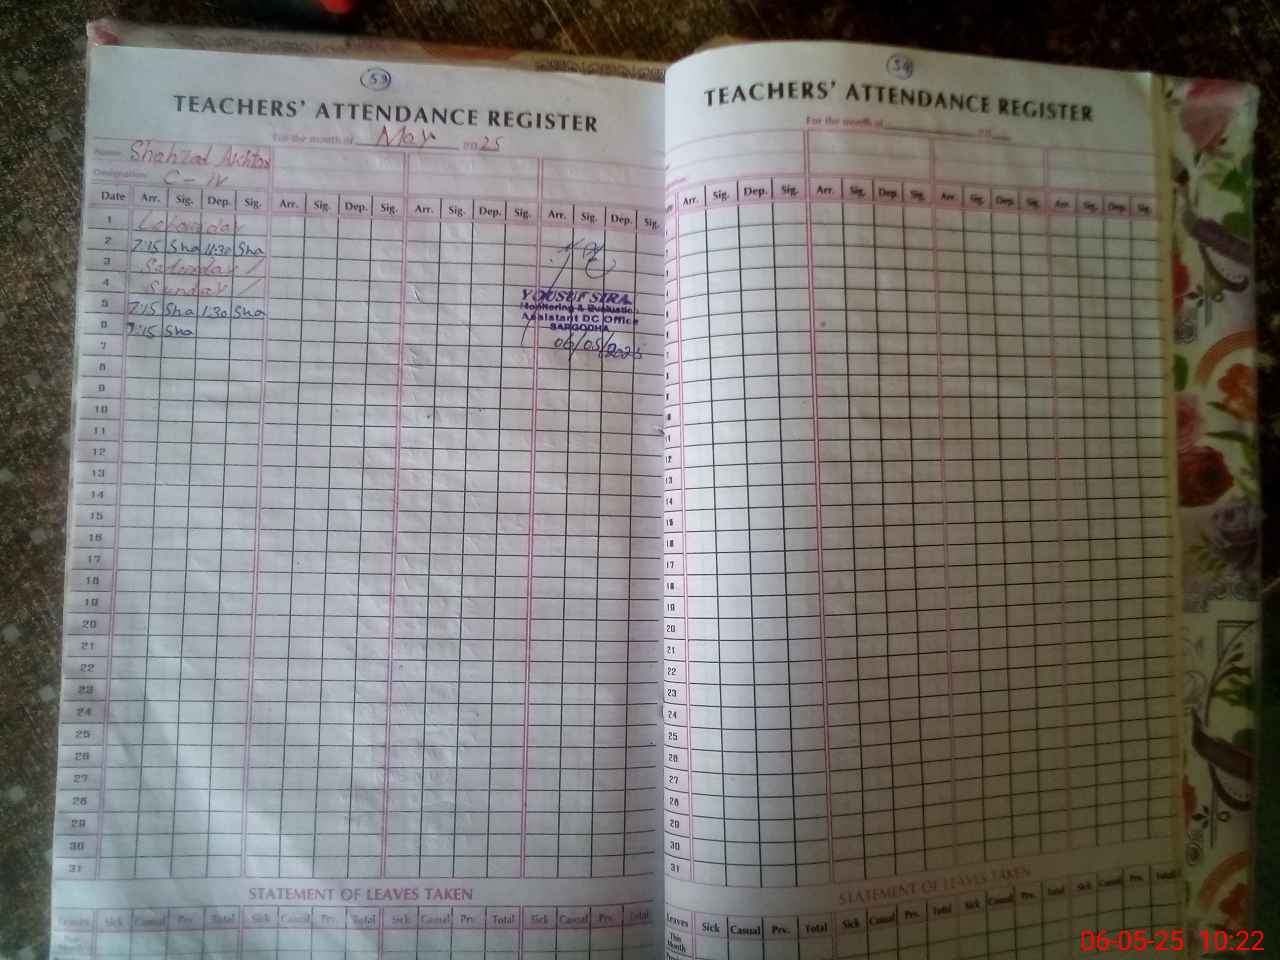 53
TEACHERS' ATTENDANCE REGISTER
For the month of May 2025
Name: Shahzad Akhtar
Designation: C - IV
Date Arr. Sig. Dep. Sig. Arr. Sig. Dep. Sig. Arr. Sig. Dep. Sig. Arr. Sig. Dep. Sig.
1 Labour day
2 7:15 Sha 11:30 Sha
3 Saturday
4 Sunday
5 7:15 Sha 1:30 Sha
6 7:15 Sha
7
8
9
10
11
12
13
14
15
16
17
18
19
20
21
22
23
24
25
26
27
28
29
30
31
YOUSUF SIRAJ
Monitoring & Evaluation
Assistant DC Office
SARGODHA
06/05/2025
STATEMENT OF LEAVES TAKEN
Leaves Sick Casual Prv. Total Sick Casual Prv. Total Sick Casual Prv. Total Sick Casual Prv. Total
54
TEACHERS' ATTENDANCE REGISTER
For the month of 20
Arr. Sig. Dep. Sig. Arr. Sig. Dep. Sig. Arr. Sig. Dep. Sig. Arr. Sig. Dep. Sig.
8
9
10
11
12
13
14
15
16
17
18
19
20
21
22
23
24
25
26
27
28
29
30
31
STATEMENT OF LEAVES TAKEN
Leaves Sick Casual Prv. Total Sick Casual Prv. Total Sick Casual Prv. Total Sick Casual Prv. Total
This
Month
06-05-25 10:22